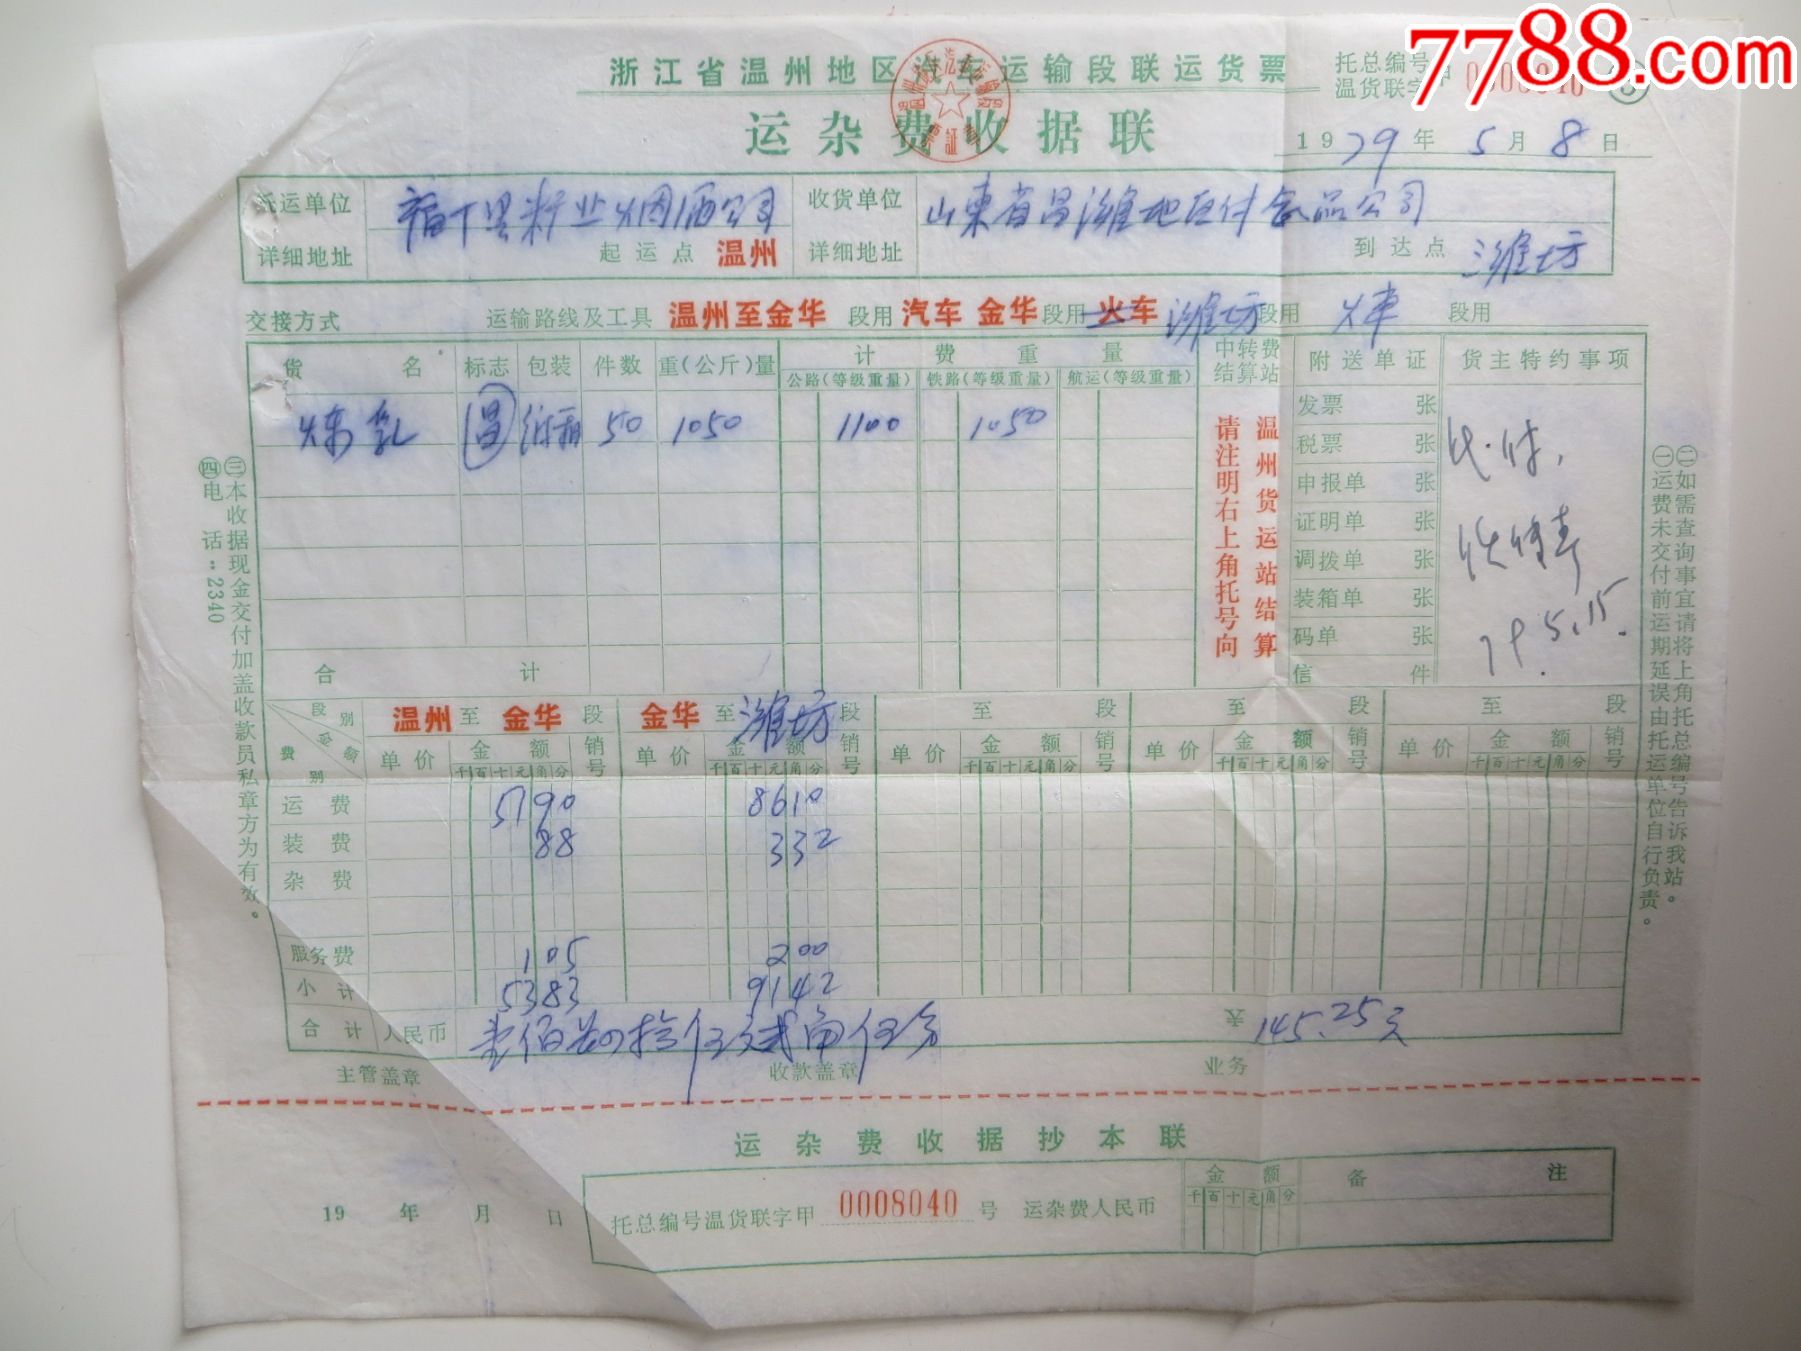 7788.com
浙江省温州地区汽车运输段联运货票
托总编号
温货联字甲
运杂费收据联
1979年5月8日
托运单位
烟酒公司
收货单位
山东省昌潍地区付食品公司
详细地址
起运点 温州
详细地址
到达点 潍坊
交接方式 运输路线及工具 温州至金华 段用 汽车 金华 段用 火车 潍坊 段用 火车 段用
货名 标志 包装 件数 重(公斤)量 计费重量 中转费结算站 附送单证 货主特约事项
公路(等级重量) 铁路(等级重量) 航运(等级重量)
炼乳 昌 纸箱 50 1050 1100 1050
温州货运站结算
请注明右上角托号向
发票 张
税票 张
申报单 张
证明单 张
调拨单 张
装箱单 张
码单 张
信件
79.5.15.
合计
段别 金额 费别
温州 至 金华 段 金华 至 潍坊 段 至 段 至 段 至 段
单价 金额 销号 单价 金额 销号 单价 金额 销号 单价 金额 销号 单价 金额 销号
千百十元角分 千百十元角分 千百十元角分 千百十元角分 千百十元角分
运费 5190 8610
装费 88 332
杂费
服务费 105 200
小计 5383 9142
合计 人民币 壹佰肆拾伍元贰角伍分 145.25元
主管盖章 收款盖章 业务
㊂本收据现金交付加盖收款员私章方为有效。
㊃电话:2340
㊁如需查询事宜请将上角托总编号告诉我站。
㊀运费未交付前运期延误由托运单位自行负责。
运杂费收据抄本联
19 年 月 日
托总编号温货联字甲 0008040 号 运杂费人民币
金额
千百十元角分
备注